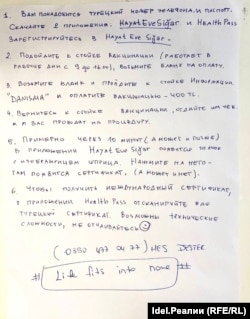 1. Вам понадобится турецкий номер телефона и паспорт.
Скачайте 2 приложения: Hayat Eve Sığar и Health Pass
Зарегистрируйтесь в Hayat Eve Sığar.
2. Подойдите к стойке вакцинации (работает в
рабочие дни с 9 до 16.00), возьмите бланк на оплату.
3. Возьмите бланк и пройдите к стойке информации
"DANIŞMA" и оплатите вакцинацию - 400 TL.
4. Вернитесь к стойке вакцинации, отдайте им чек,
и вас проводят на процедуру.
5. Примерно через 10 минут (а может и позже)
в приложении Hayat Eve Sığar появится
с изображением шприца. Нажмите на него -
там появится сертификат. (А может и нет).
6. Чтобы получить международный сертификат,
в приложении Health Pass отсканируйте
турецкий сертификат. Возможны технические
сложности, не отчаивайтесь
HES
# Life fits into home #
Idel.Реалии (RFE/RL)